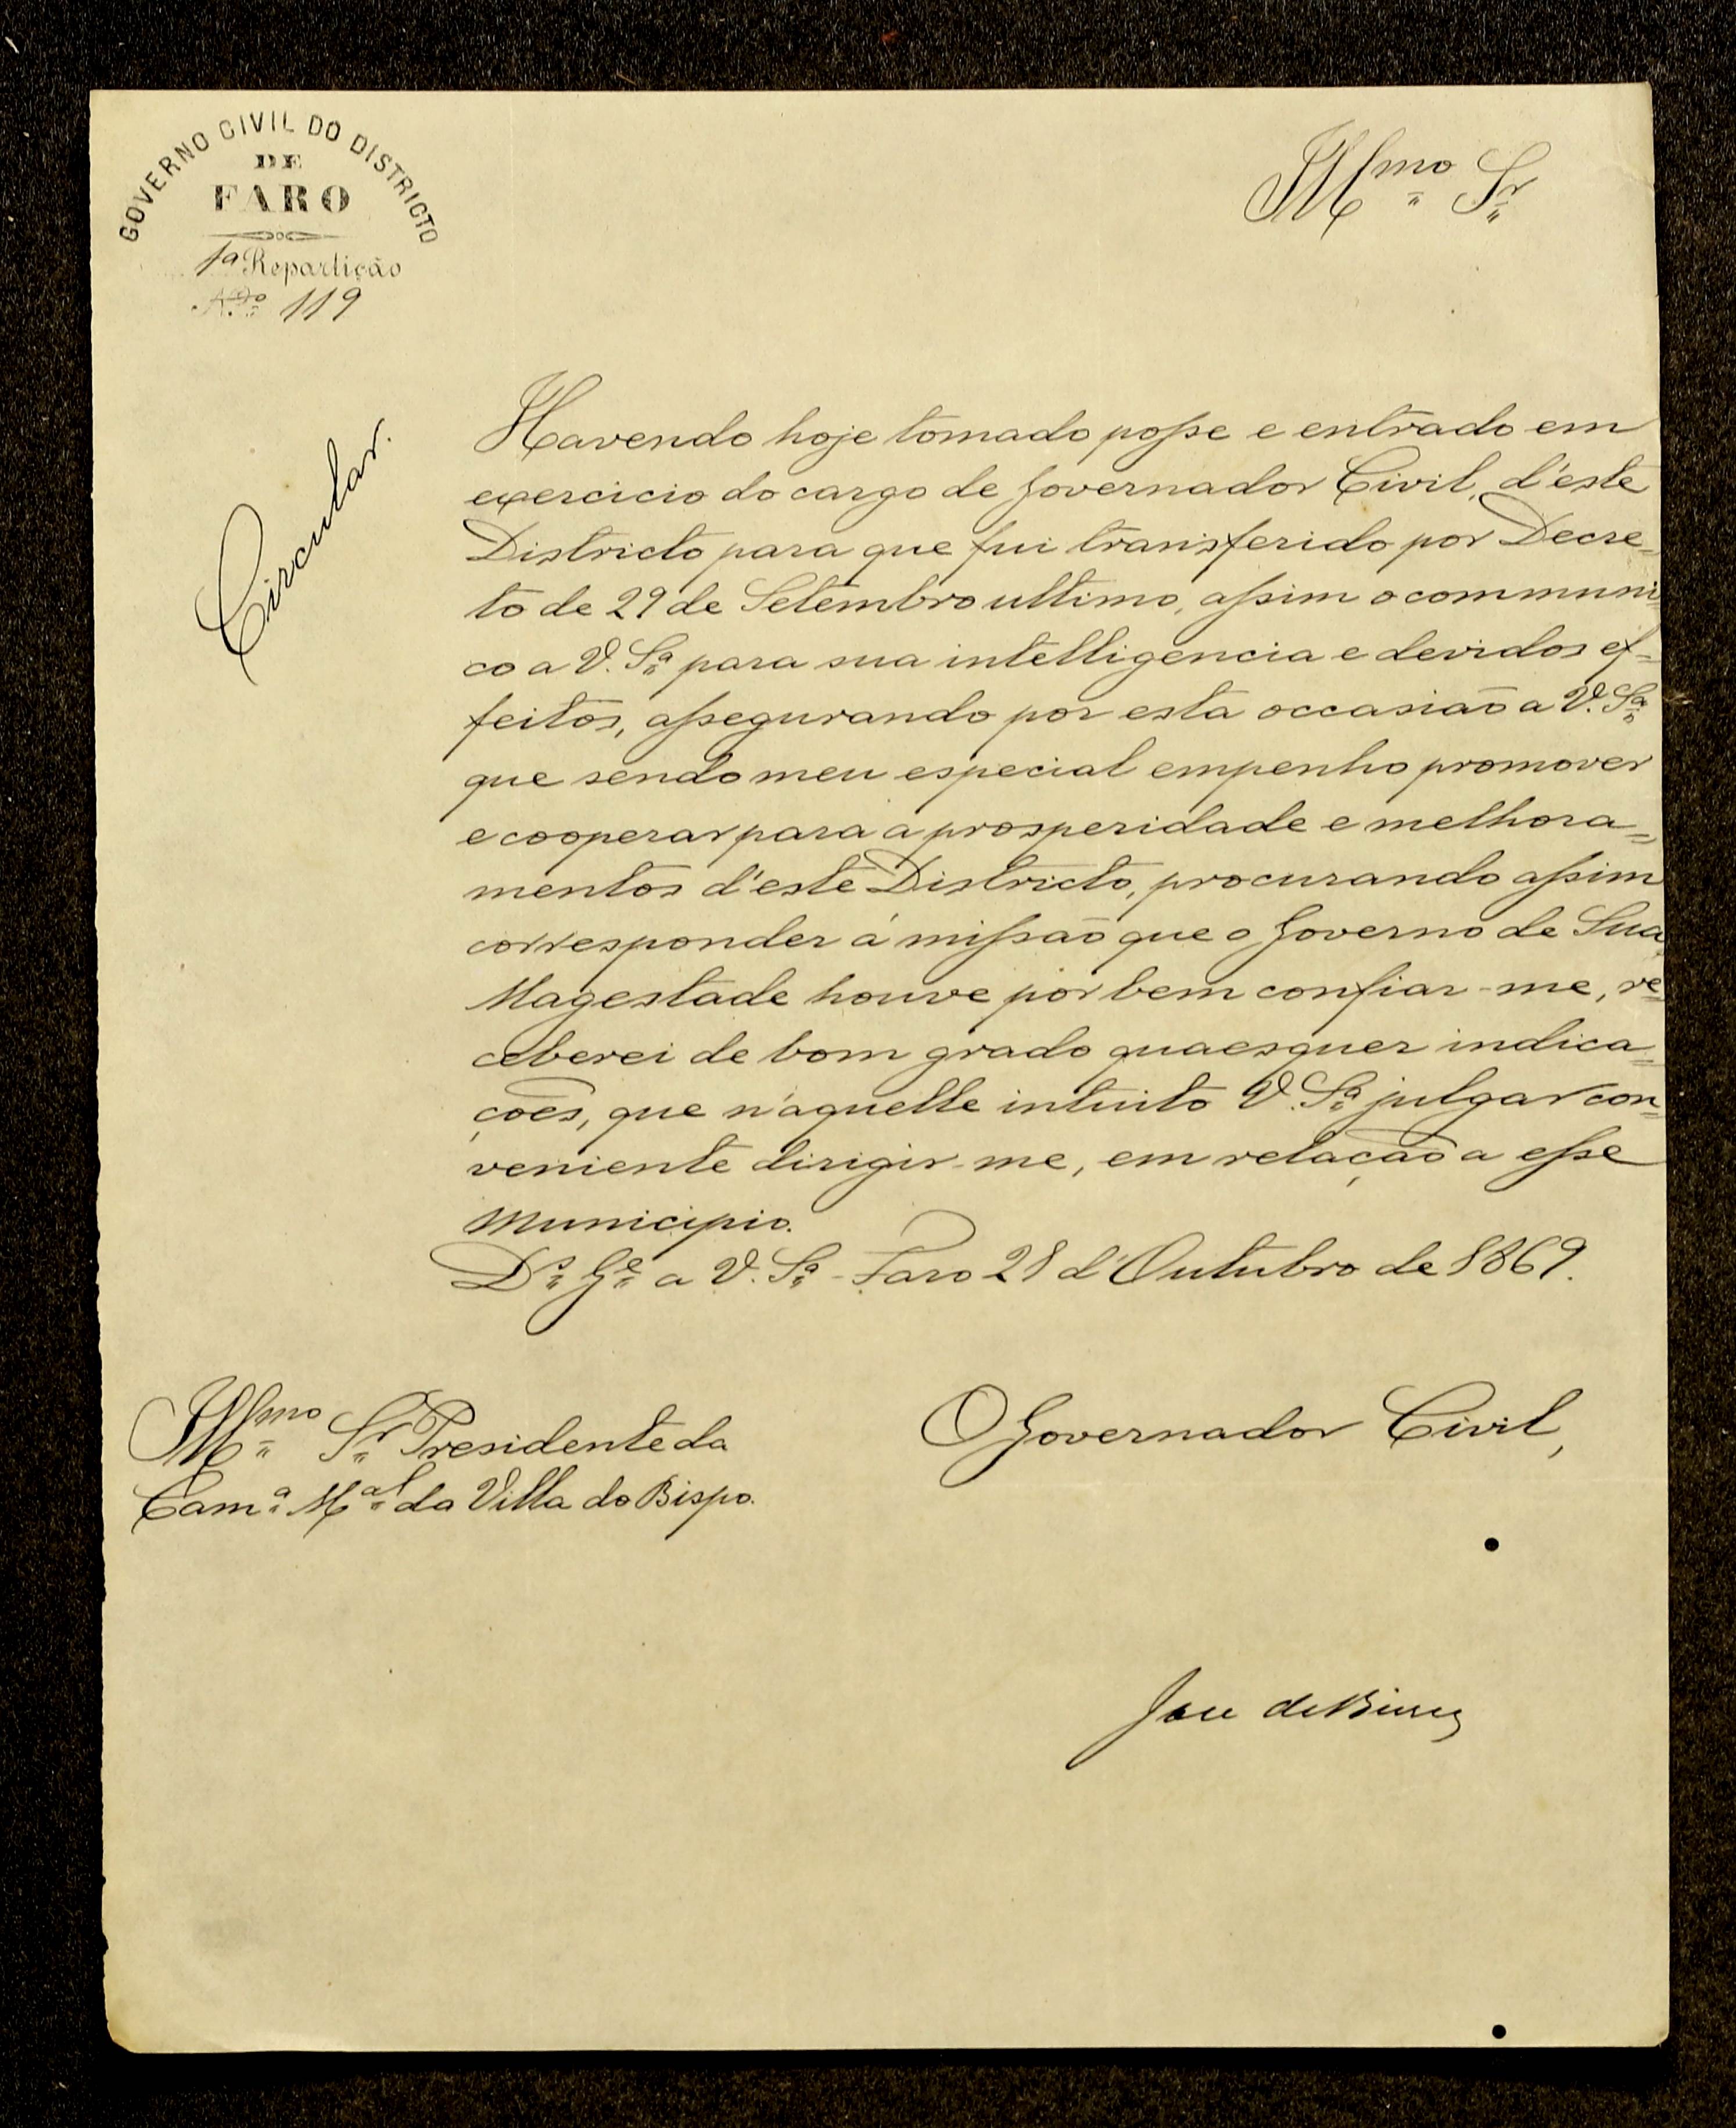 GOVERNO CIVIL DO DISTRICTO
DE
FARO
1ª Repartição
N.º 119
Illmo Sr
Circular.
Havendo hoje tomado posse e entrado em
exercicio do cargo de Governador Civil, d'este
Districto para que fui transferido por Decre=
to de 29 de Setembro ultimo, assim o communi=
co a V. Sª para sua intelligencia e devidos ef=
feitos, assegurando por esta occasião a V. Sª
que sendo meu especial empenho promover
e cooperar para a prosperidade e melhora=
mentos d'este Districto, procurando assim
corresponder á missão que o Governo de Sua
Magestade houve por bem confiar-me, re=
ceberei de bom grado quaesquer indica=
ções, que n'aquelle intuito V. Sª julgar con=
veniente dirigir-me, em relação a esse
Municipio.
Ds Ge a V. Sª - Faro 28 d'Outubro de 1869.
Illmo Sr Presidente da
Camª Mal da Villa do Bispo.
O Governador Civil,
José de Beires